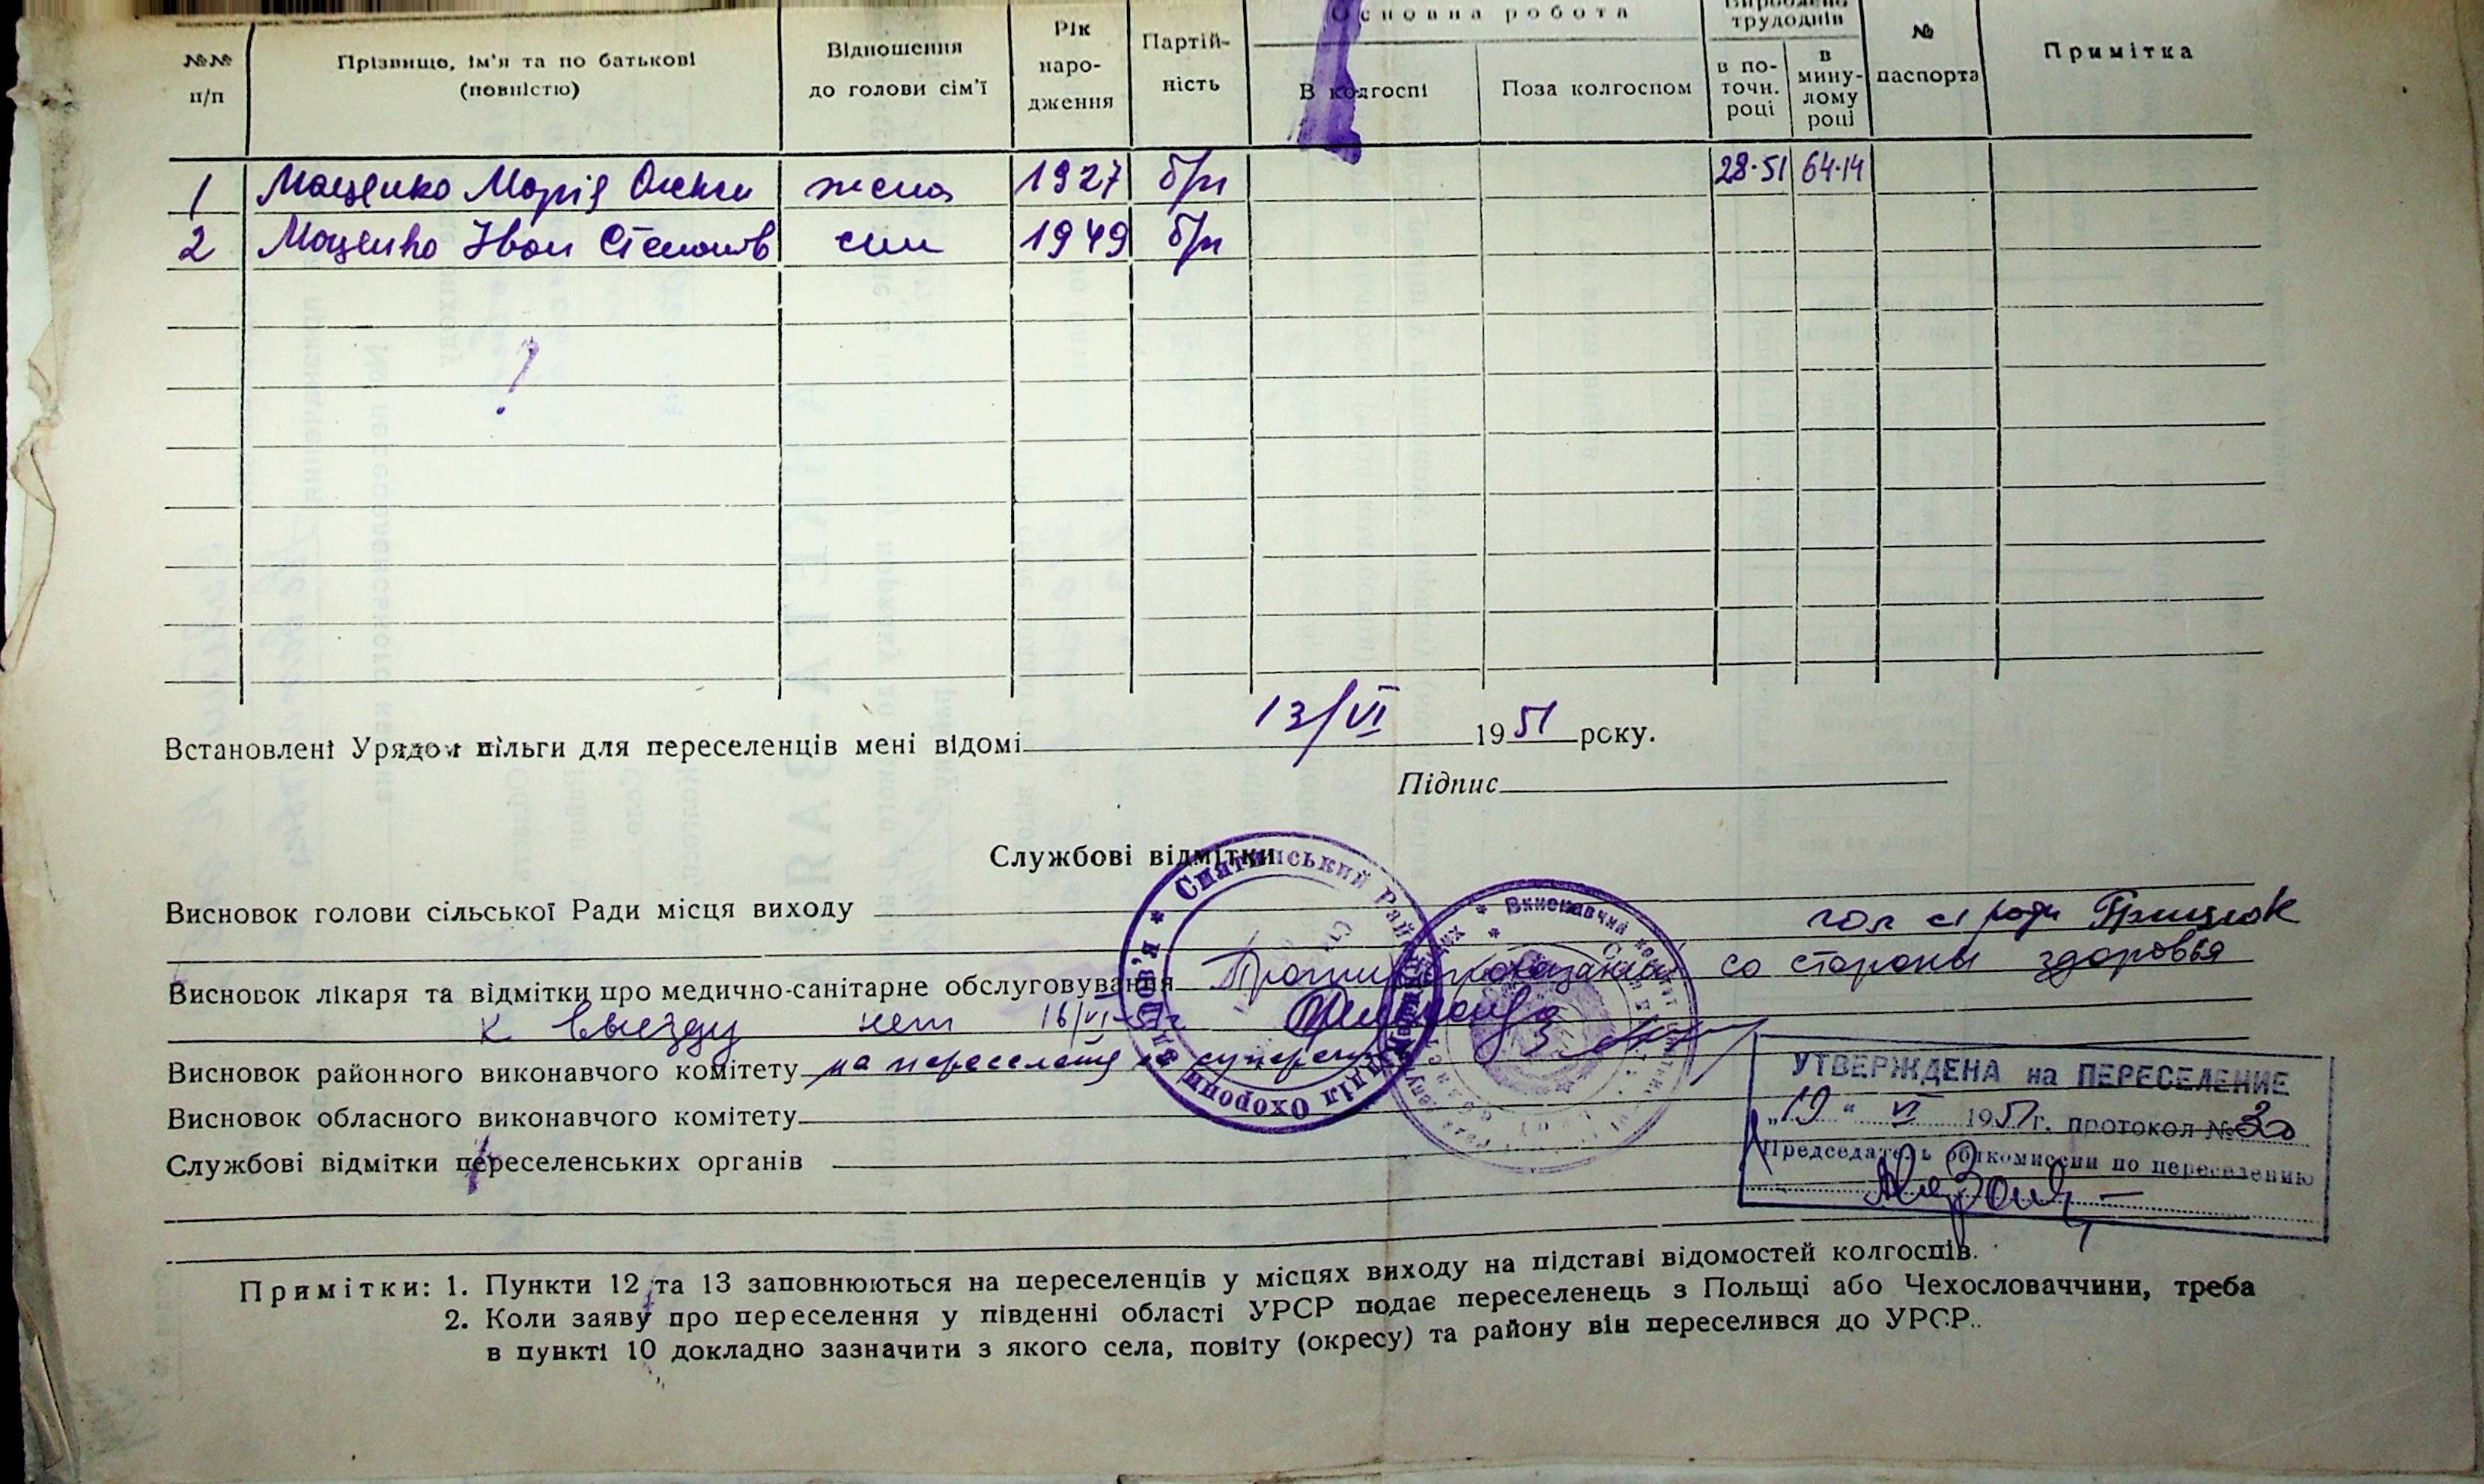 №№ п/п
Прізвище, ім'я та по батькові (повністю)
Відношення до голови сім'ї
Рік народження
Партійність
Основна робота
В колгоспі
Поза колгоспом
Вироблено трудоднів
в поточн. році
в минулому році
№ паспорта
Примітка
1 Моценко Марія жена 1927 б/п 28·51 64·14
2 Моценко Іван Степанов син 1949 б/п
Встановлені Урядом пільги для переселенців мені відомі 13/VI 1951 року.
Підпис
Службові відмітки
Висновок голови сільської Ради місця виходу
гол с/ ради Грицюк
Висновок лікаря та відмітки про медично-санітарне обслуговування Противопоказаний со стороны здоровья
к выезду нет 16/VI-51г
Висновок районного виконавчого комітету на переселення не суперечить
Висновок обласного виконавчого комітету
Службові відмітки переселенських органів
УТВЕРЖДЕНА на ПЕРЕСЕЛЕНИЕ
„19“ VI 1951г. протокол № 30
Председатель облкомиссии по переселению
Примітки: 1. Пункти 12 та 13 заповнюються на переселенців у місцях виходу на підставі відомостей колгоспів.
2. Коли заяву про переселення у південні області УРСР подає переселенець з Польщі або Чехословаччини, треба
в пункті 10 докладно зазначити з якого села, повіту (округу) та району він переселився до УРСР.